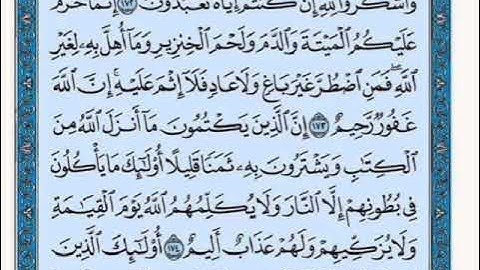 وَٱشۡكُرُواْ لِلَّهِ إِن كُنتُمۡ إِيَّاهُ تَعۡبُدُونَ ١٧٢ إِنَّمَا حَرَّمَ
عَلَيۡكُمُ ٱلۡمَيۡتَةَ وَٱلدَّمَ وَلَحۡمَ ٱلۡخِنزِيرِ وَمَآ أُهِلَّ بِهِۦ لِغَيۡرِ
ٱللَّهِۖ فَمَنِ ٱضۡطُرَّ غَيۡرَ بَاغٖ وَلَا عَادٖ فَلَآ إِثۡمَ عَلَيۡهِۚ إِنَّ ٱللَّهَ
غَفُورٞ رَّحِيمٌ ١٧٣ إِنَّ ٱلَّذِينَ يَكۡتُمُونَ مَآ أَنزَلَ ٱللَّهُ مِنَ
ٱلۡكِتَٰبِ وَيَشۡتَرُونَ بِهِۦ ثَمَنٗا قَلِيلًا أُوْلَٰٓئِكَ مَا يَأۡكُلُونَ
فِي بُطُونِهِمۡ إِلَّا ٱلنَّارَ وَلَا يُكَلِّمُهُمُ ٱللَّهُ يَوۡمَ ٱلۡقِيَٰمَةِ
وَلَا يُزَكِّيهِمۡ وَلَهُمۡ عَذَابٌ أَلِيمٌ ١٧٤ أُوْلَٰٓئِكَ ٱلَّذِينَ